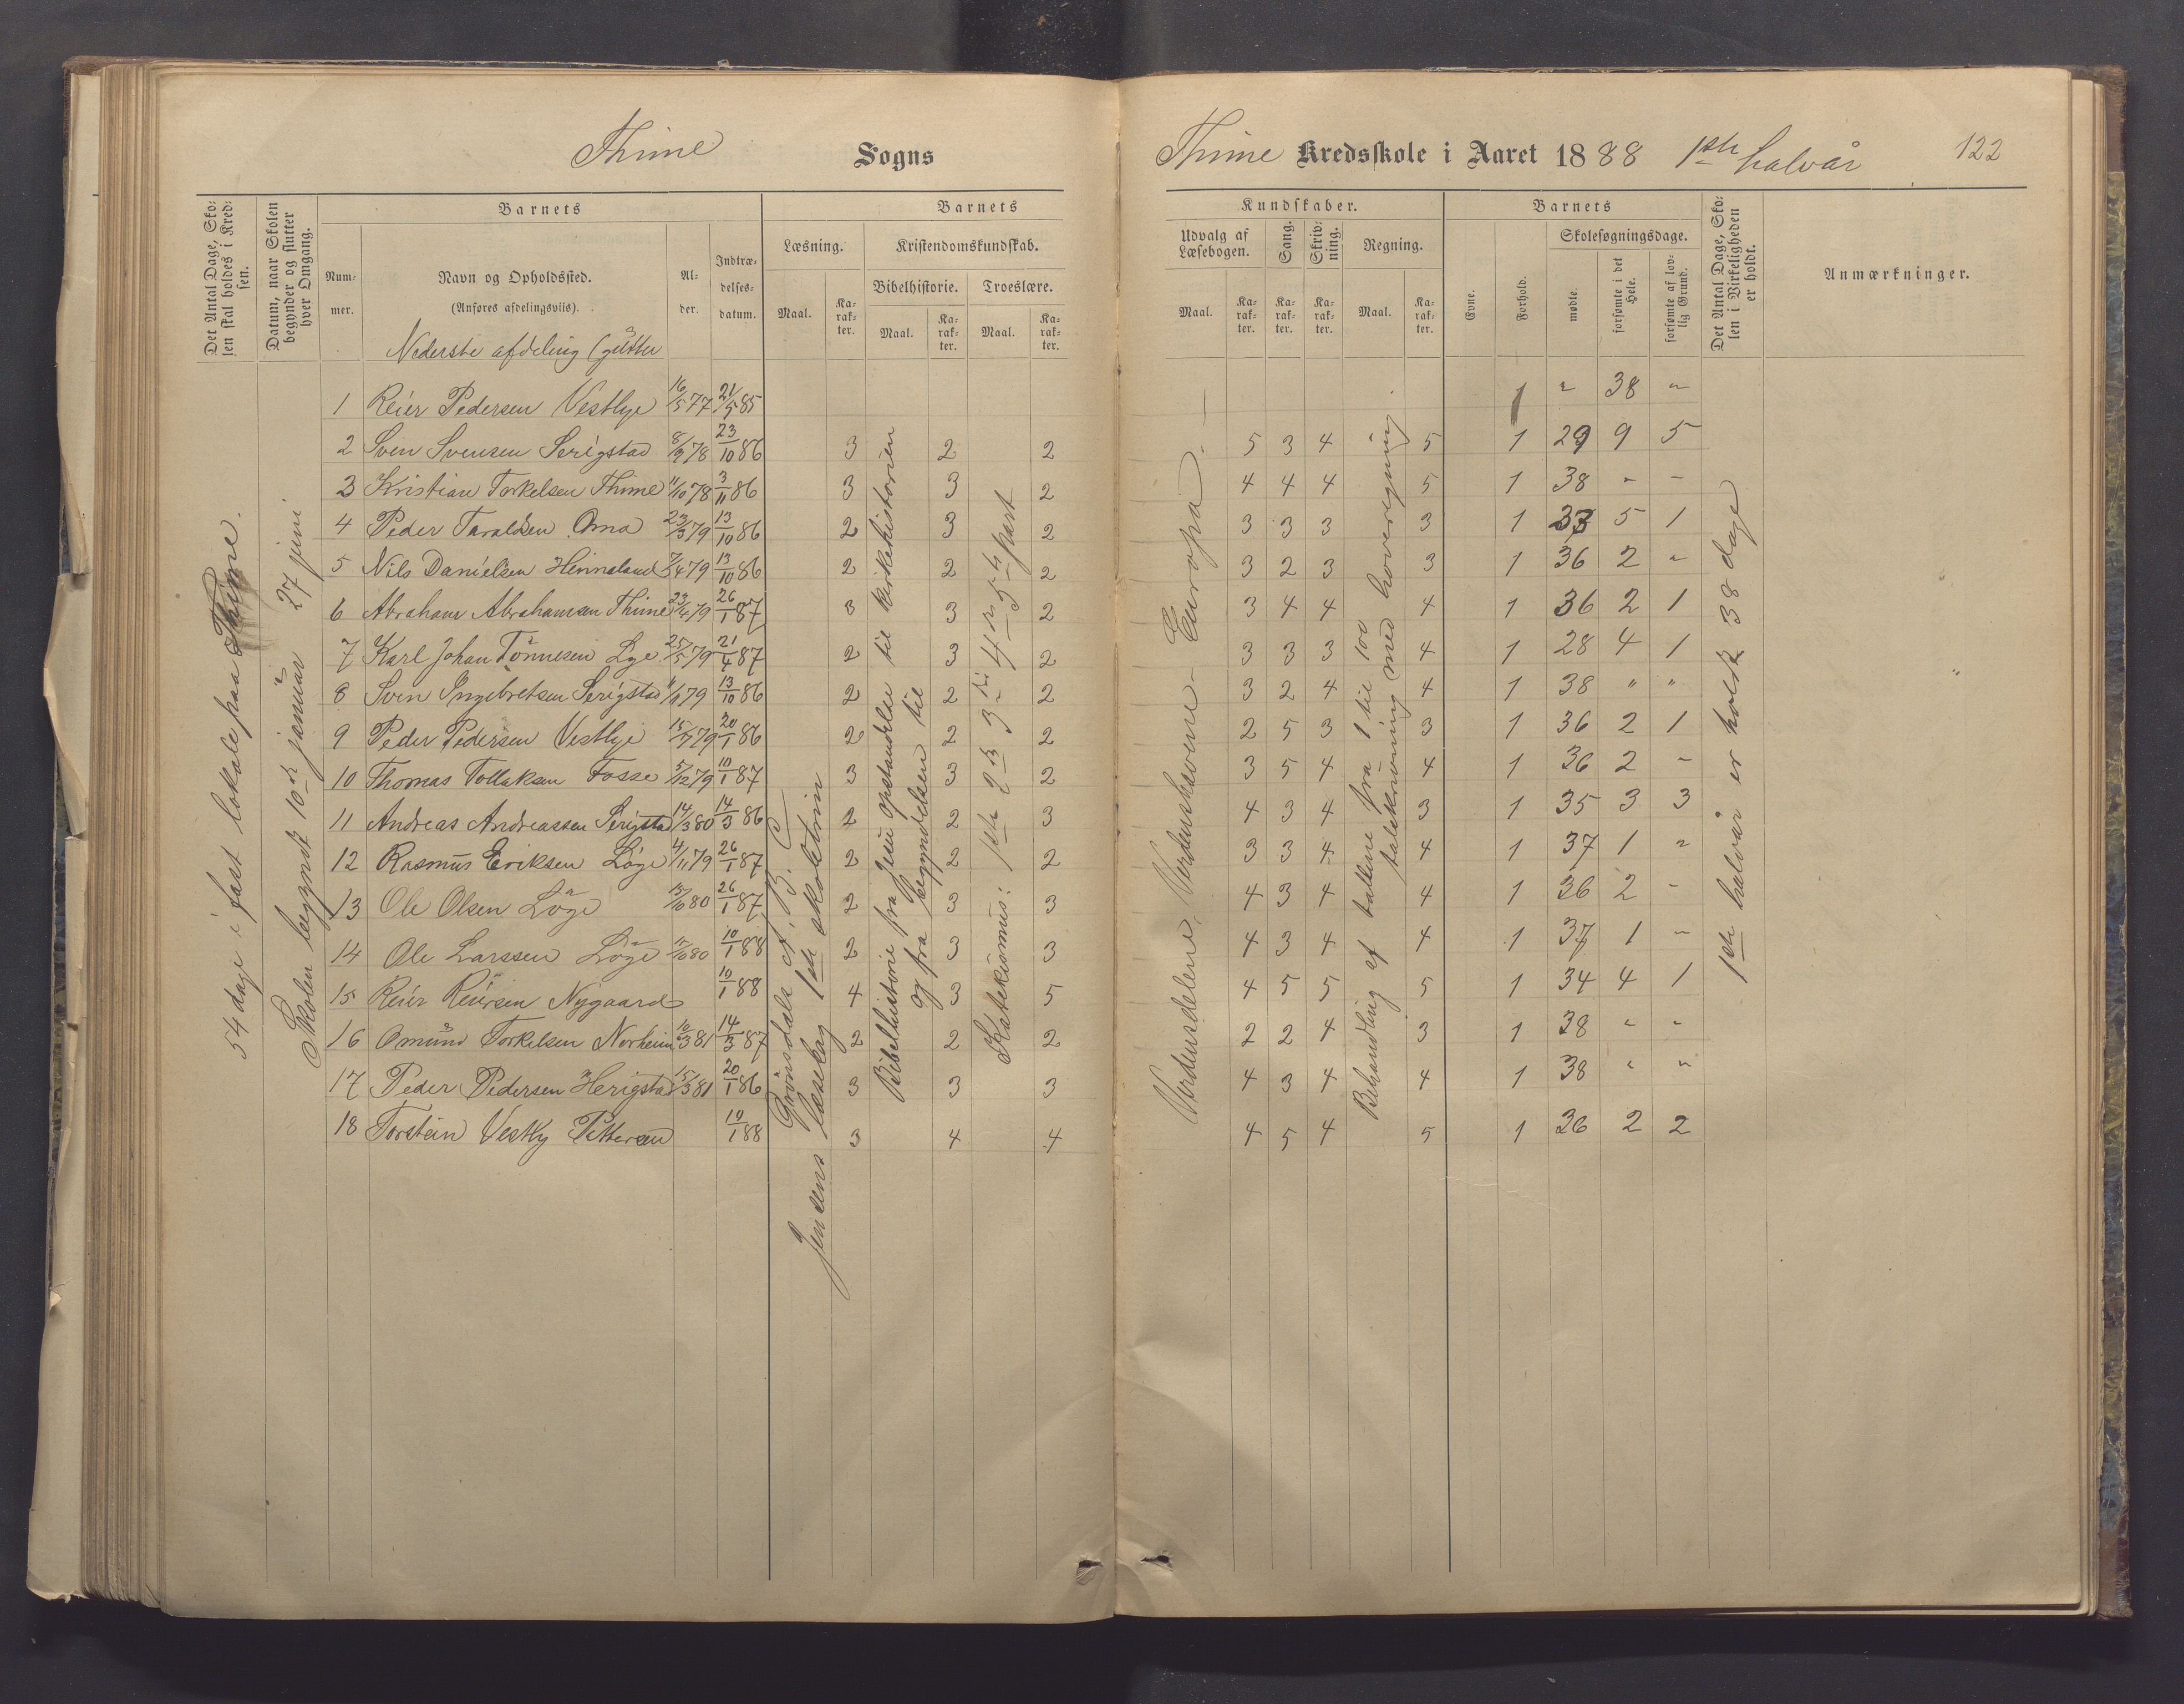 Thime Sogns
Thime Kredsskole i Aaret 1888 1ste halvår 122
Det Antal Dage, Sko-
len skal holdes i Kred-
sen.
Datum, naar Skolen
begynder og slutter
hver Omgang.
Barnets
Num-
mer.
Navn og Opholdssted.
(Anføres afdelingsviis).
Al-
der.
Indtræ-
delses-
datum.
Barnets
Læsning.
Maal.
Ka-
rak-
ter.
Kristendomskundskab.
Bibelhistorie.
Maal.
Ka-
rak-
ter.
Troeslære.
Maal.
Ka-
rak-
ter.
Kundskaber.
Udvalg af
Læsebogen.
Maal.
Ka-
rak-
ter.
Sang.
Ka-
rak-
ter.
Skriv-
ning.
Ka-
rak-
ter.
Regning.
Maal.
Ka-
rak-
ter.
Barnets
Evne.
Forhold.
Skolesøgningsdage.
mødte.
forsømte i det
Hele.
forsømte af lov-
lig Grund.
Det Antal Dage, Sko-
len i Virkeligheden
er holdt.
Anmærkninger.
Nederste afdeling (gutter
1 Reier Pedersen Vestlye 16/5 77 21/5 85 1 " 38 "
2 Sven Svensen Serigstad 8/9 78 23/10 86 3 2 2 5 3 4 5 1 29 9 5
3 Kristian Torkelsen Thime 11/10 78 3/11 86 3 3 2 4 4 4 5 1 38 " "
4 Peder Taraldsen Oma 23/3 79 13/10 86 2 3 2 3 3 3 3 1 33 5 1
5 Nils Danielsen Hennaland 7/4 79 13/10 86 2 2 2 3 2 3 3 1 36 2 "
6 Abraham Abrahamsen Thime 23/4 79 26/1 87 3 3 2 3 4 4 4 1 36 2 1
7 Karl Johan Tønnesen Lye 25/5 79 21/4 87 2 3 2 3 3 3 4 1 28 4 1
8 Sven Ingebretsen Serigstad 11/9 79 13/10 86 2 2 2 3 2 4 4 1 38 " "
9 Peder Pedersen Vestlye 15/7 79 20/1 86 2 2 2 2 5 3 3 1 36 2 1
10 Thomas Tollaksen Fosse 5/12 79 10/1 87 3 3 2 3 5 4 4 1 36 2 "
11 Andreas Andreassen Serigstad 14/3 80 14/3 86 2 2 3 4 3 4 3 1 35 3 3
12 Rasmus Eriksen Løge 4/11 79 26/1 87 2 2 2 3 3 4 4 1 37 1 "
13 Ole Olsen Løge 15/10 80 26/1 87 2 3 3 4 3 4 4 1 36 2 "
14 Ole Larssen Løge 11/10 80 10/1 88 2 3 3 4 3 4 4 1 37 1 "
15 Reier Reiersen Nygaard 10/1 88 4 3 5 4 5 5 5 1 34 4 1
16 Omund Torkelsen Norheim 10/3 81 14/3 87 2 2 2 2 2 4 3 1 38 " "
17 Peder Pedersen Herigstad 15/3 81 20/1 86 3 3 3 4 3 4 4 1 38 " "
18 Torstein Vestly Pettersen 10/1 88 3 4 4 4 5 4 5 1 36 2 2
54 dage i fast lokale paa Thime.
Skolen begyndt 10de januar 27 juni
Grønsdals A. B. C
Jensens læsebog 1ste skoletrin
Bibelhistorie fra Jesu opstandelse til kirkehistorien
og fra begyndelsen til
Katekismus: 1ste 2de 3die 4de 5te part
Verdensdelene, Verdenshavene - Europa. -
Behandling af tallene fra 1 til 100
talskrivning med hoveregning
1ste halvår er holdt 38 dage